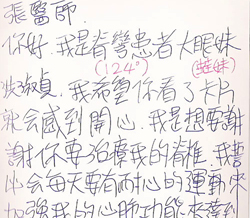 張醫師.
你好.我是脊彎患者大眼妹
(124°) (娃妹)
淑貞.我希望你看了卡片
就会感到開心.我是想要謝
謝你要治療我的脊椎.我
比会每天要有耐心的運動來
加強我的心肺功能來達到